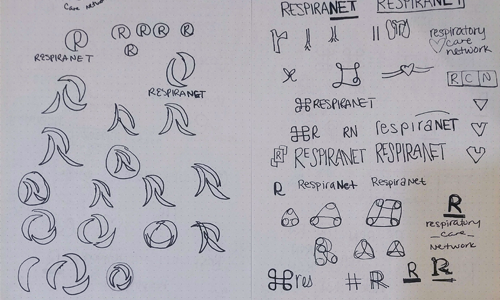 care network
R
R R R R
R
RESPIRANET
RESPIRANET
R
R
R
RESPIRANET
RESPIRANET
respiratory
care
network
RCN
RESPIRANET
R
RN
respiraNET
R
RESPIRANET
RESPIRANET
R
RespiraNet
RespiraNet
R
respiratory
care
Network
res
R
R
R